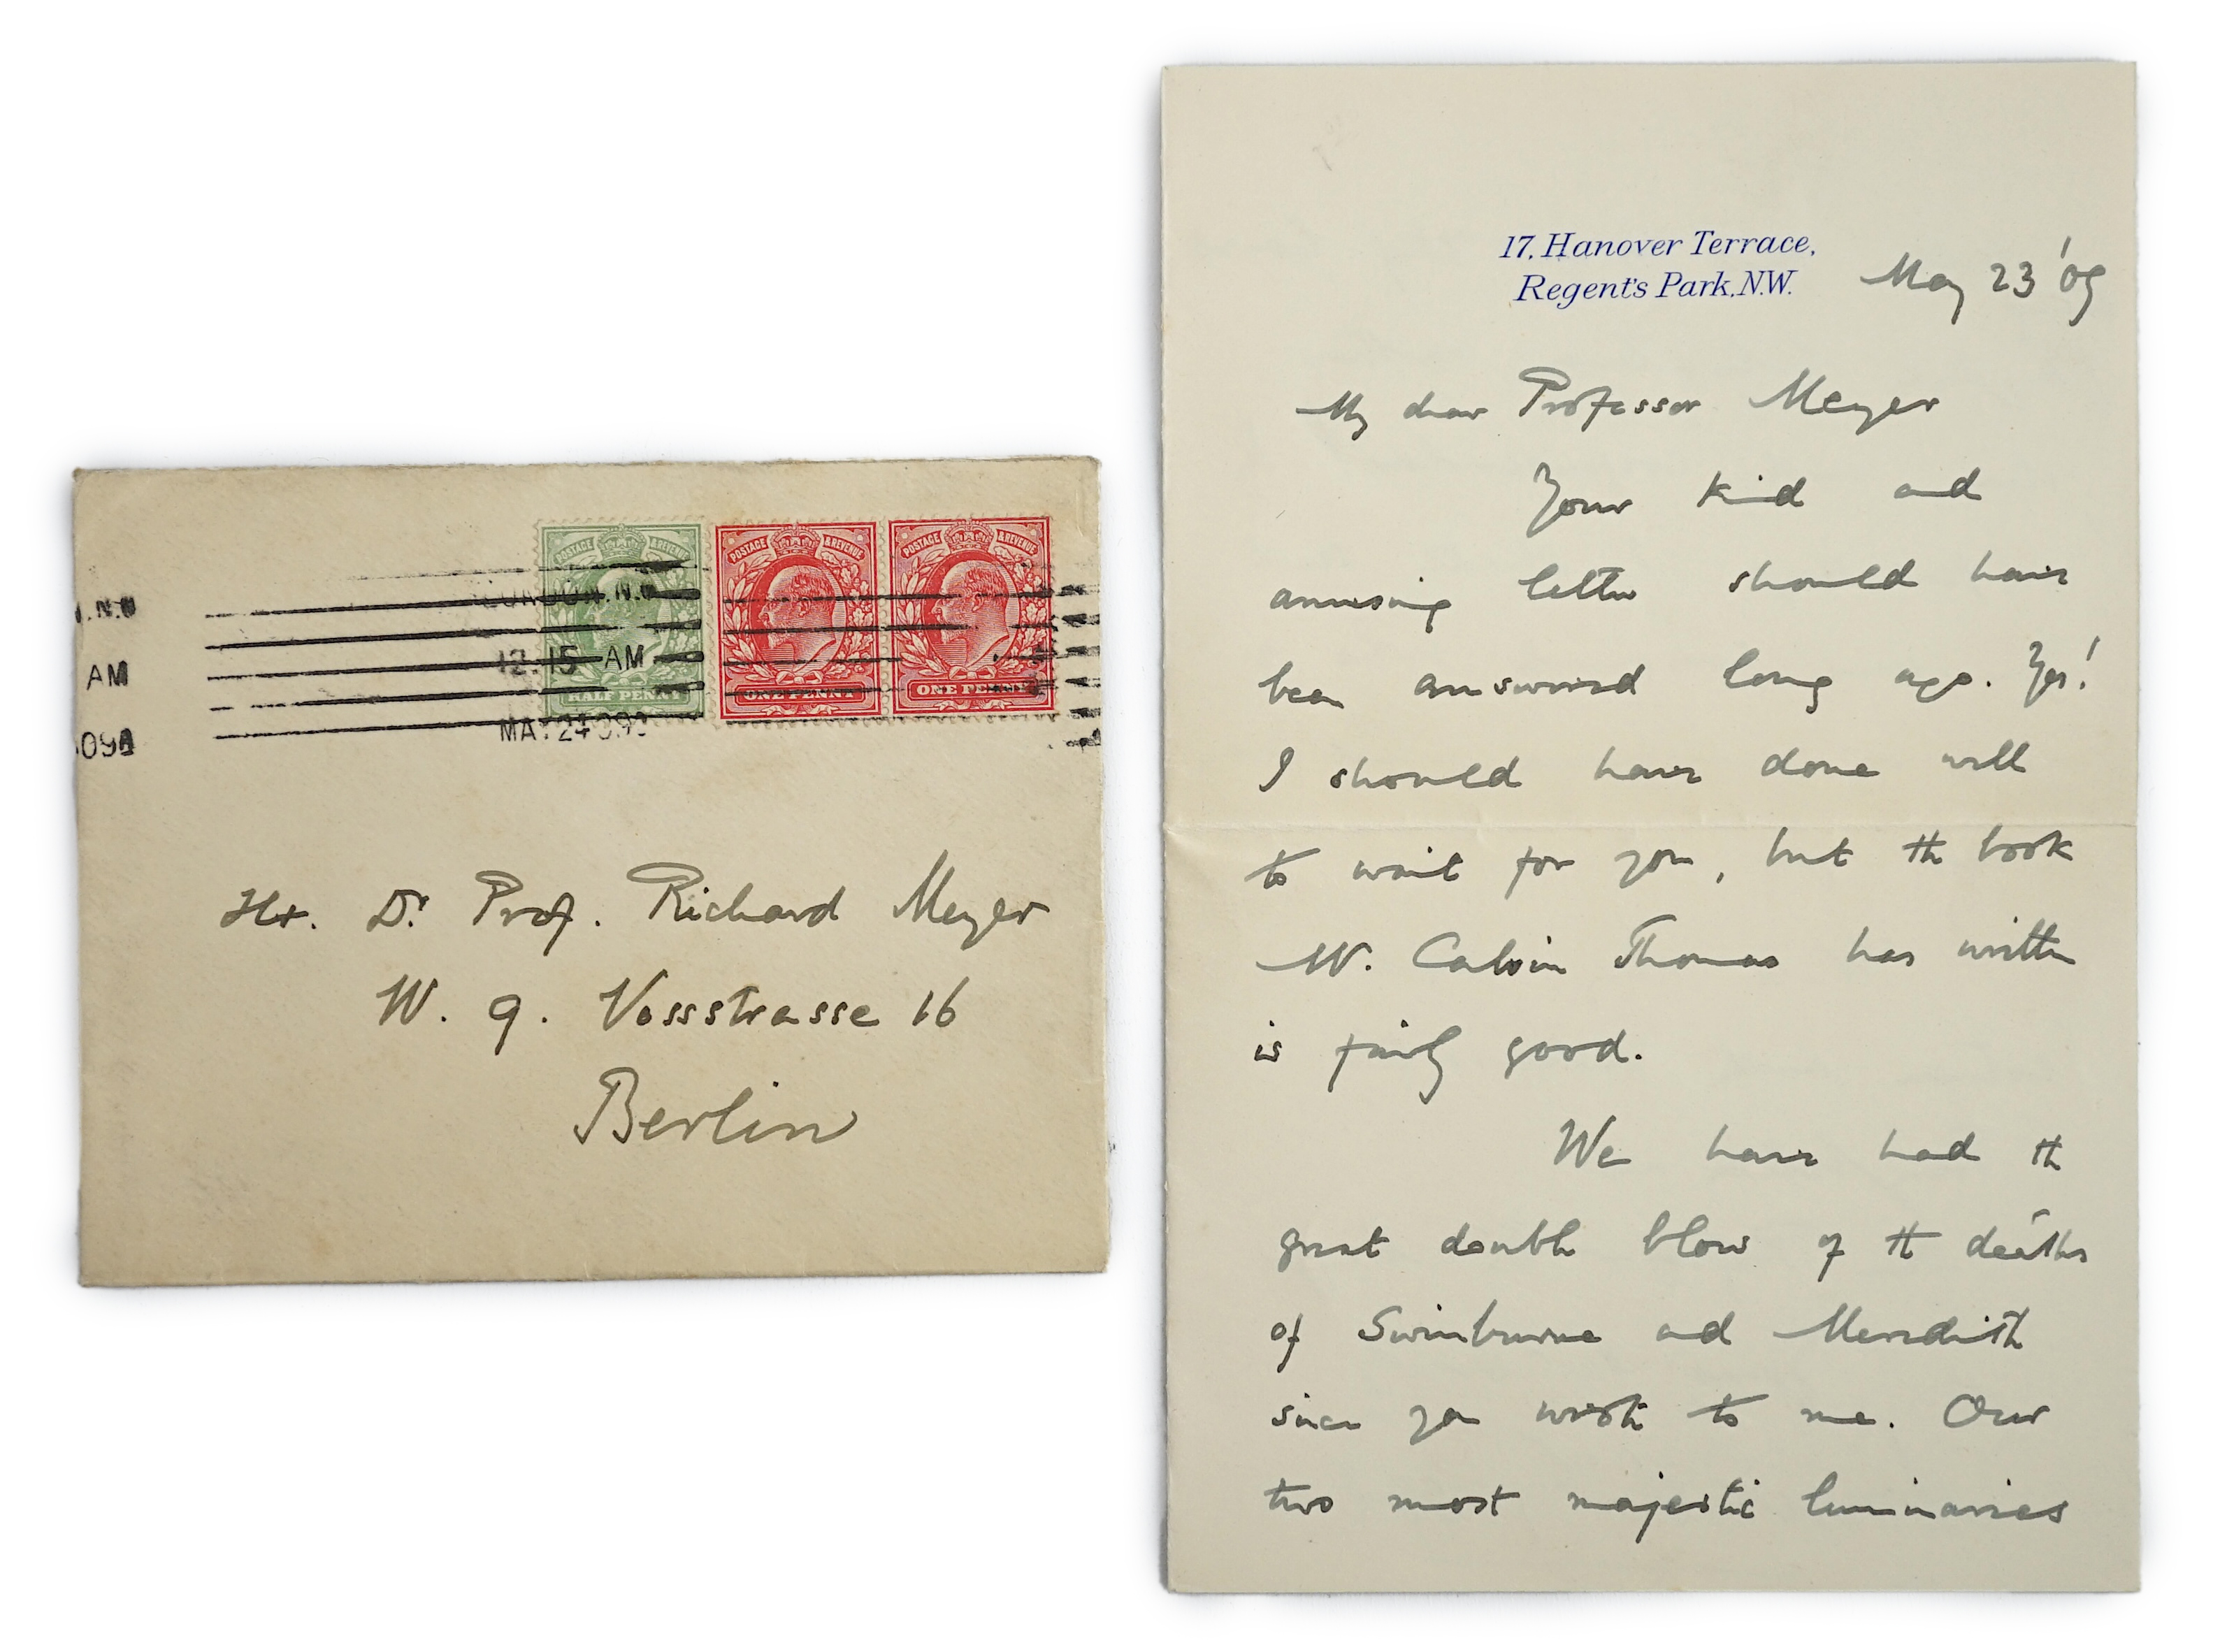 LONDON.N.W
12.15 AM
MAY 24 09
.N.W
AM
09
POSTAGE & REVENUE
HALF PENNY
POSTAGE & REVENUE
ONE PENNY
POSTAGE & REVENUE
ONE PENNY
Hr. Dr. Prof. Richard Meyer
W. 9. Vossstrasse 16
Berlin
17, Hanover Terrace,
Regent's Park, N.W.
May 23 '09
My dear Professor Meyer
Your kind and
amusing letter should have
been answered long ago. Yes!
I should have done well
to wait for you, but the book
Mr. Calvin Thomas has written
is fairly good.
We have had the
great double blow of the deaths
of Swinburne and Meredith
since you wrote to me. Our
two most majestic luminaries